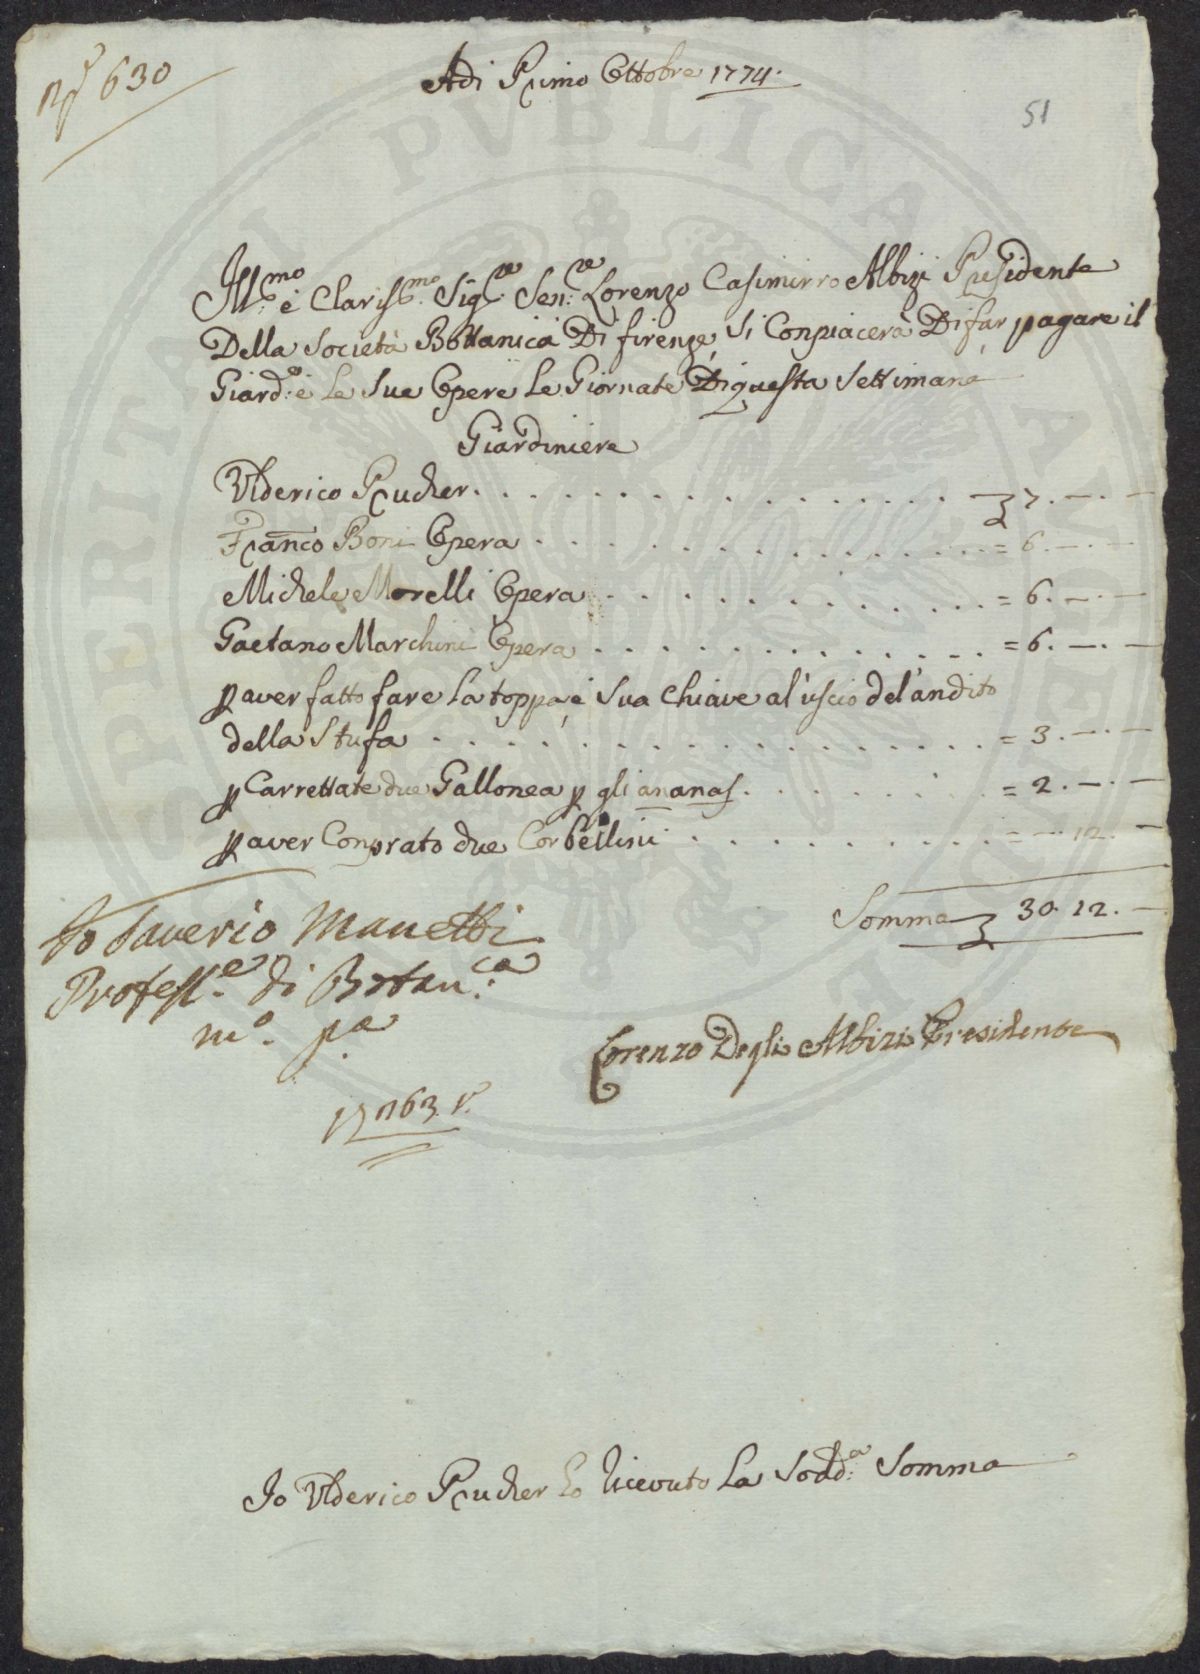 nº 630
Adi Primo Ottobre 1774.
51
Ill:mo e Clariss:mo Sig:re Sen:re Lorenzo Casimirro Albizi Presidente
Della Società Bottanica Di firenze, Si Conpiacerà Di far pagare il
Giard:e e le Sue Opere Le Giornate Di questa Settimana
Giardiniere
Ulderico Prucher 7. —. —
Franco Boni Opera = 6. —. —
Michele Morelli Opera = 6. —. —
Gaetano Marchini Opera = 6. —. —
p aver fatto fare La toppa, e Sua Chiave al'uscio del'andito
della Stufa = 3. —. —
p Carrettate due Gallonea p gli ananas = 2. —. —
p aver Conprato due Corbellini = —. 12. —
Somma 30. 12. —
Io Saverio Manetti
Profess:e di Botan:ca
mº. pª
Lorenzo Degli Albizi Presidente
Io Ulderico Prucher ho ricevuto La Sodd:a Somma
SPERITATI PVBLICA